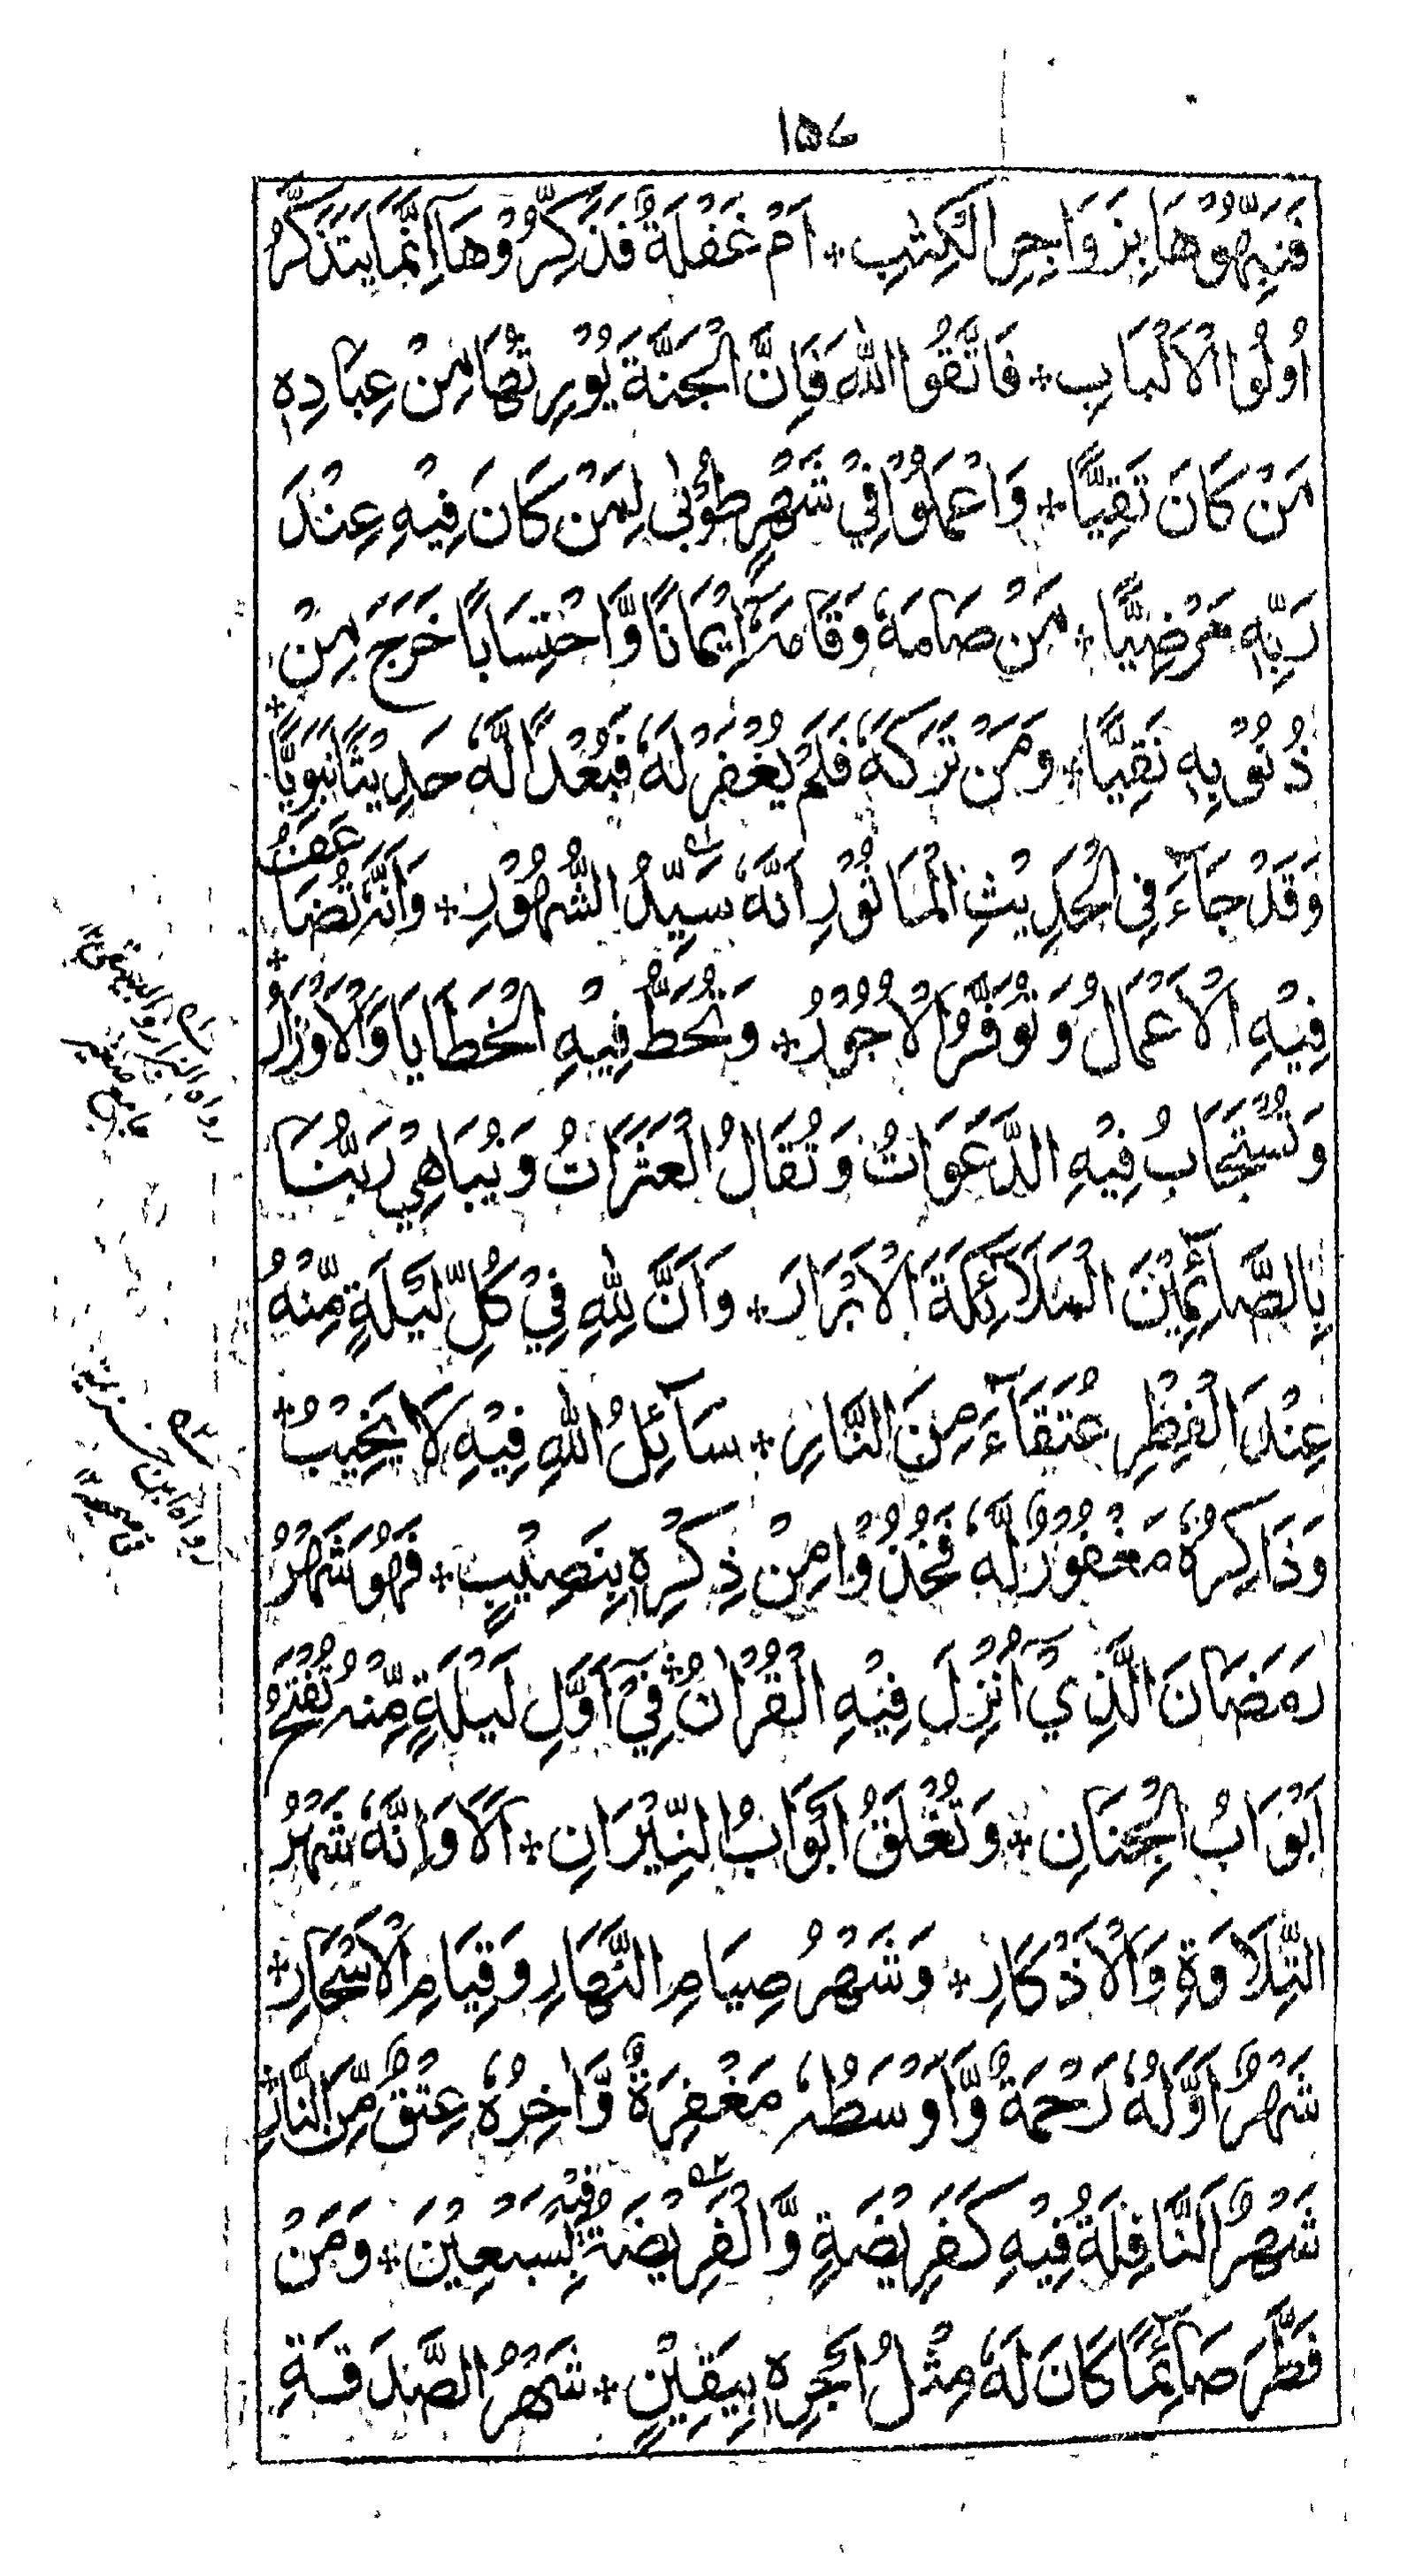 ۱۵۶
فَنَبِّهُوْهَا بِزَوَاجِرِ الْكِتٰبِ + اَمْ غَفْلَةٌ فَذَكِّرُوْهَا اِنَّمَا يَتَذَكَّرُ
اُولُوا الْاَلْبَابِ + فَاتَّقُوا اللّٰهَ فَاِنَّ الْجَنَّةَ يُوْرِثُهَا مِنْ عِبَادِهٖ
مَنْ كَانَ تَقِيًّا + وَاعْمَلُوْا فِيْ شَهْرٍ طُوْبٰى لِمَنْ كَانَ فِيْهِ عِنْدَ
رَبِّهٖ مَرْضِيًّا + مَنْ صَامَهٗ وَقَامَهٗ اِيْمَانًا وَّاحْتِسَابًا خَرَجَ مِنْ
ذُنُوْبِهٖ نَقِيًّا + وَمَنْ تَرَكَهٗ فَلَمْ يُغْفَرْ لَهٗ فَبُعْدًا لَّهٗ حَدِيْثًا نَبَوِيًّا +
وَقَدْ جَآءَ فِى الْحَدِيْثِ الْمَاثُوْرِ اَنَّهٗ سَيِّدُ الشُّهُوْرِ + وَاَنَّهٗ تُضَاعَفُ
فِيْهِ الْاَعْمَالُ وَتُوَفَّرُ الْاُجُوْرُ + وَتُحَطُّ فِيْهِ الْخَطَايَا وَالْاَوْزَارُ +
وَتُسْتَجَابُ فِيْهِ الدَّعَوَاتُ وَتُقَالُ الْعَثَرَاتُ وَيُبَاهِيْ رَبُّنَا
بِالصَّآئِمِيْنَ الْمَلَآئِكَةَ الْاَبْرَارَ + وَاَنَّ لِلّٰهِ فِيْ كُلِّ لَيْلَةٍ مِّنْهُ
عِنْدَ الْفِطْرِ عُتَقَآءَ مِنَ النَّارِ + سَآئِلُ اللّٰهِ فِيْهِ لَا يَخِيْبُ +
وَذَاكِرُهٗ مَغْفُوْرٌ لَّهٗ فَخُذُوْا مِنْ ذِكْرِهٖ بِنَصِيْبٍ + فَهُوَ شَهْرُ
رَمَضَانَ الَّذِيْٓ اُنْزِلَ فِيْهِ الْقُرْاٰنُ + فِيْٓ اَوَّلِ لَيْلَةٍ مِّنْهُ تُفْتَحُ
اَبْوَابُ الْجِنَانِ + وَتُغْلَقُ اَبْوَابُ النِّيْرَانِ + اَلَا وَاِنَّهٗ شَهْرُ
التِّلَاوَةِ وَالْاَذْكَارِ + وَشَهْرُ صِيَامِ النَّهَارِ وَقِيَامِ الْاَسْحَارِ +
شَهْرٌ اَوَّلُهٗ رَحْمَةٌ وَّاَوْسَطُهٗ مَغْفِرَةٌ وَّاٰخِرُهٗ عِتْقٌ مِّنَ النَّارِ +
شَهْرٌ اَلنَّافِلَةُ فِيْهِ كَفَرِيْضَةٍ وَّالْفَرِيْضَةُ فِيْهِ بِسَبْعِيْنَ + وَمَنْ
فَطَّرَ صَآئِمًا كَانَ لَهٗ مِثْلُ اَجْرِهٖ بِيَقِيْنٍ + شَهْرُ الصَّدَقَةِ
رواه البزار والبيهقي
جامع صغير
رواه ابن خزيمة